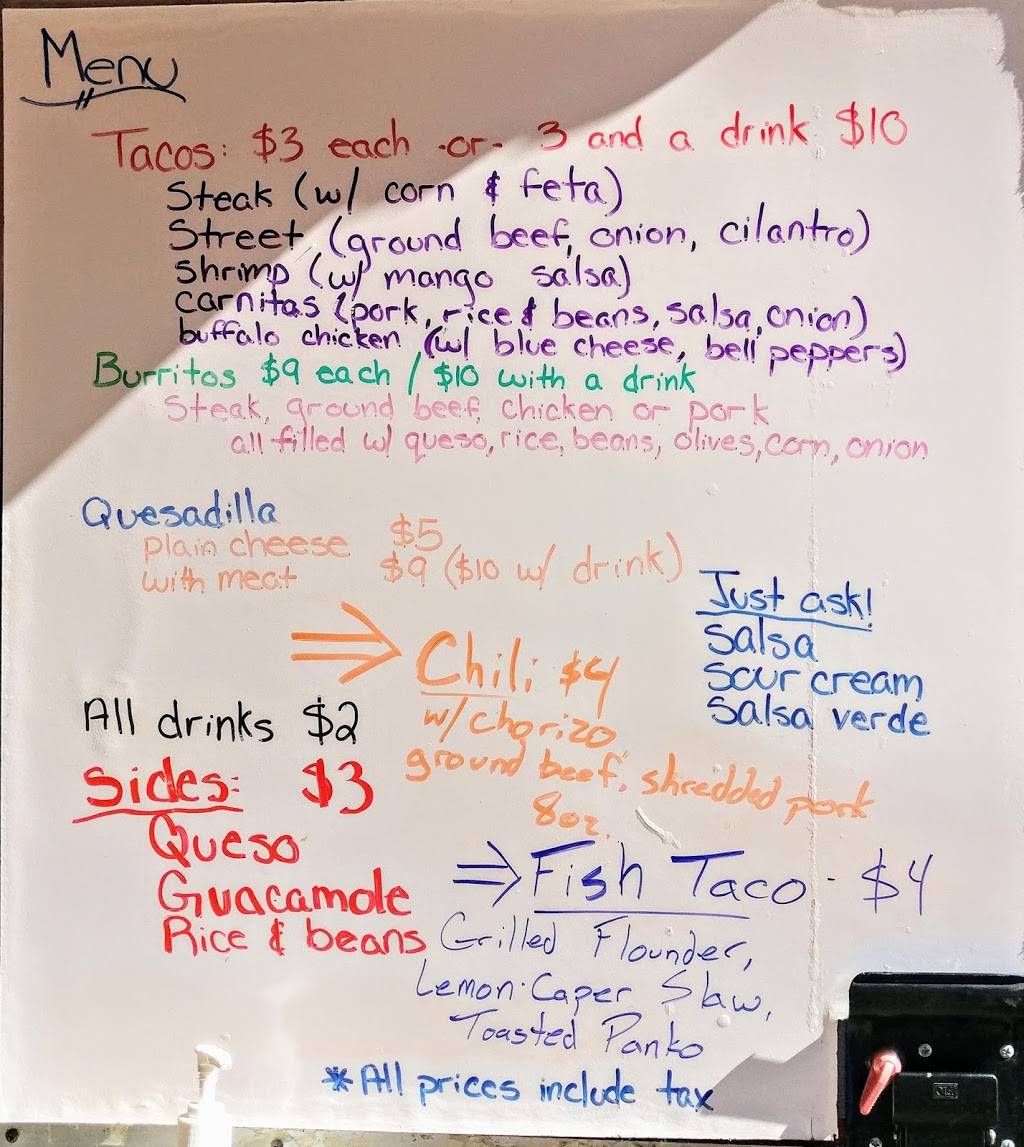 Menu
Tacos: $3 each -or- 3 and a drink $10
Steak (w/ corn & feta)
Street (ground beef, onion, cilantro)
shrimp (w/ mango salsa)
carnitas (pork, rice & beans, salsa, onion)
buffalo chicken (w/ blue cheese, bell peppers)
Burritos $9 each / $10 with a drink
Steak, ground beef, chicken or pork
all filled w/ queso, rice, beans, olives, corn, onion
Quesadilla
plain cheese $5
with meat $9 ($10 w/ drink)
Just ask!
salsa
sour cream
salsa verde
⇒ Chili $4
w/ chorizo
ground beef, shredded pork
8oz.
All drinks $2
Sides: $3
Queso
Guacamole
Rice & beans
⇒ Fish Taco - $4
Grilled Flounder,
Lemon-Caper Slaw,
Toasted Panko
*All prices include tax